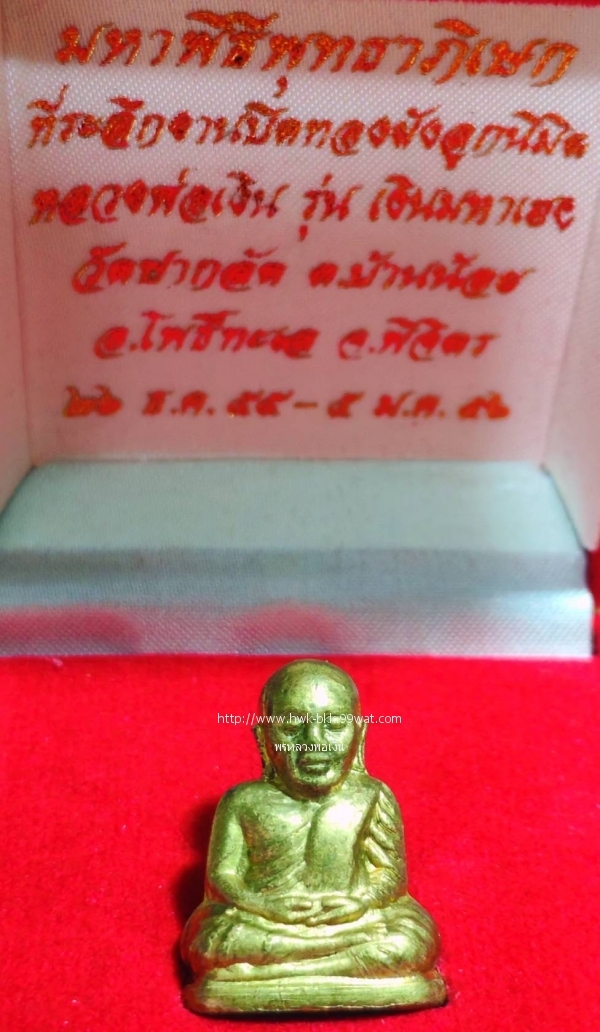 มหาพิธีพุทธาภิเษก
ที่ระลึกงานปิดทองฝังลูกนิมิต
หลวงพ่อเงิน รุ่น เงินมหาเฮง
วัดชากลัด ต.บ้านน้อย
อ.โพธิ์ทะเล จ.พิจิตร
๒๖ ธ.ค. ๕๕ - ๕ ม.ค. ๕๖
http://www.hwk-bkk.99wat.com
พรหลวงพ่อเงิน